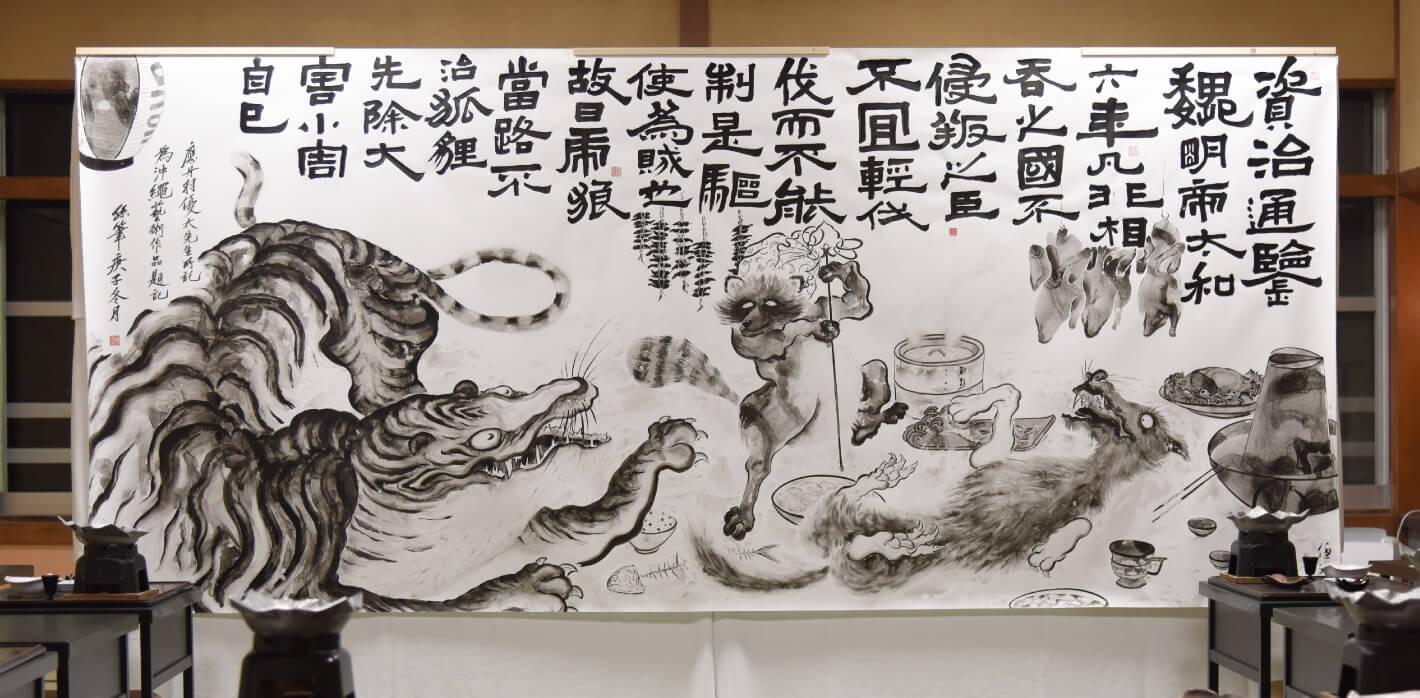 資治通鑒
魏明帝太和
六年凡非相
吞之國不
侵叛之臣
不宜輕伐
伐而不能
制是驅
使為賊也
故曰虎狼
當路不
治狐狸
先除大
害小害
自已
應丹羽優太先生所託
為沖繩藝術作品題記
庚子冬月